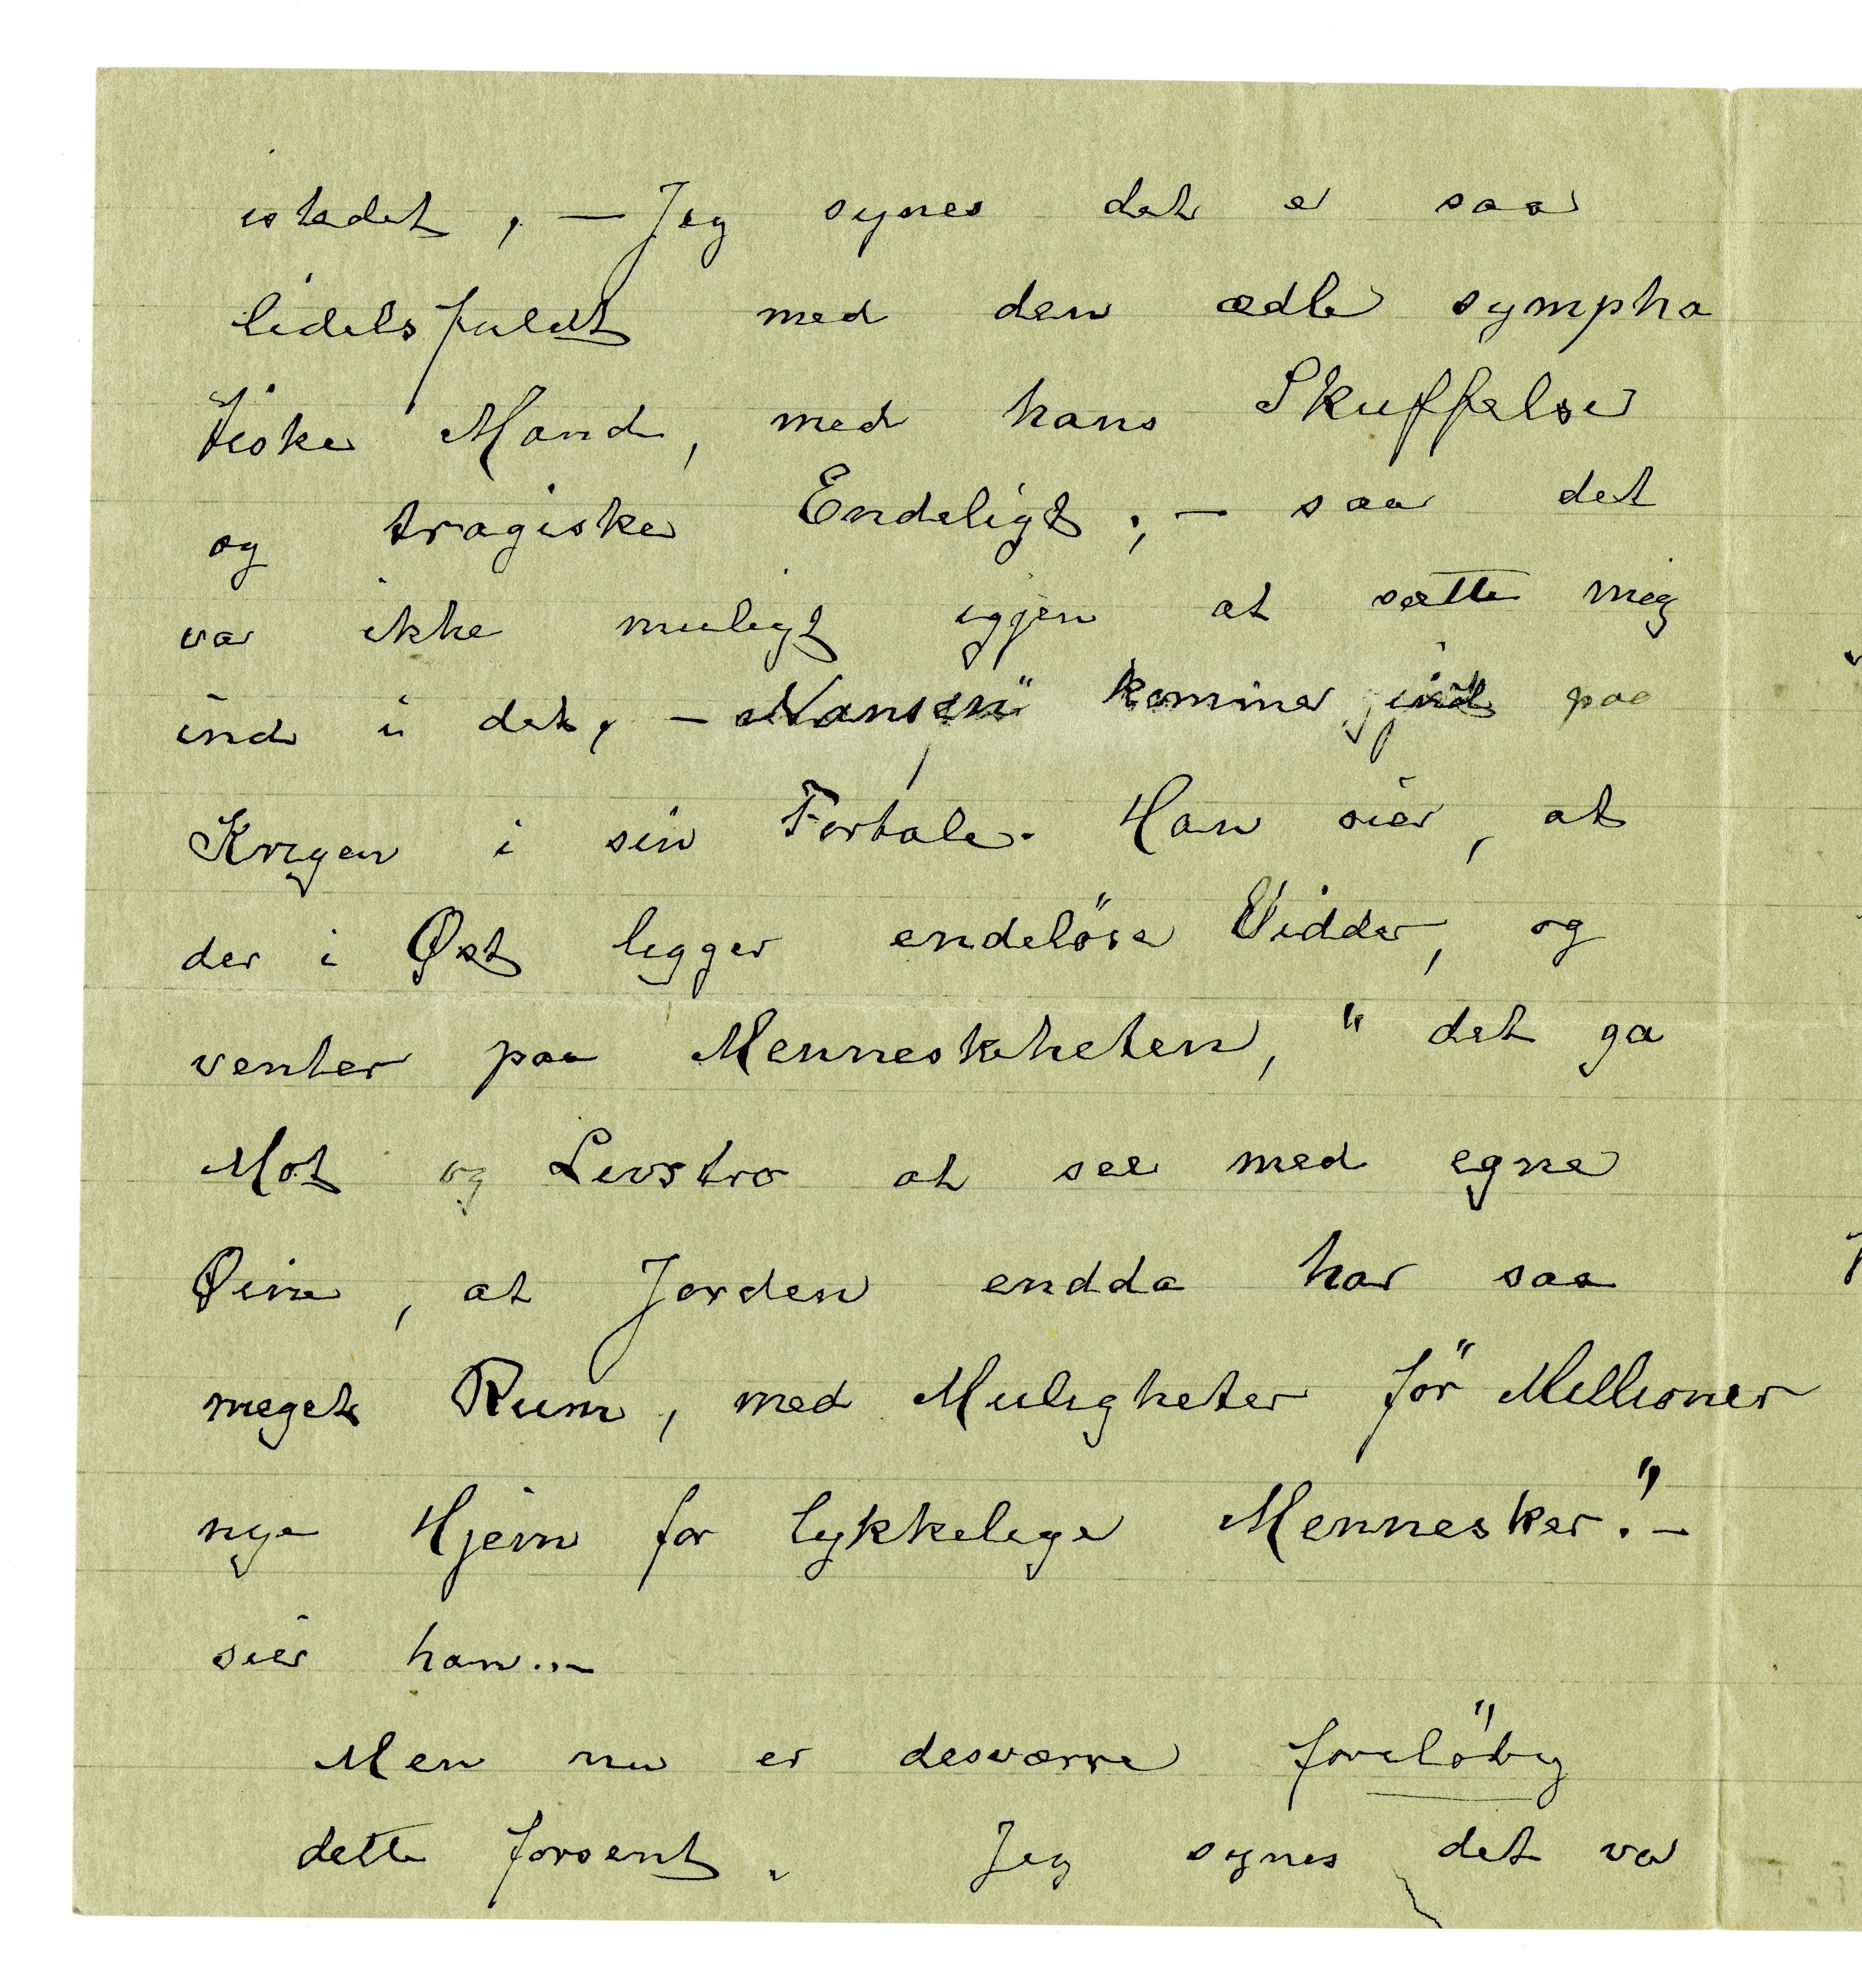 istedet, – Jeg synes det er saa
lidelsfuldt med den ædle sympha
tiske Mand, med hans Skuffelse
og tragiske Endeligt; – saa det
var ikke muligt igjen at sætte mig
ind i det, – Nansen" kommer ind paa
Krigen i sin Fortale. Han sier, at
der i Øst ligger endeløse Vidder, og
venter paa Menneskeheten, " det ga
Mot og Livstro at see med egne
Øine, at Jorden endda har saa
meget Rum, med Muligheter för Millioner
nye Hjem for lykkelige Mennesker." –
sier han. –
Men nu er desværre foreløbig
dette forsent. Jeg synes det var